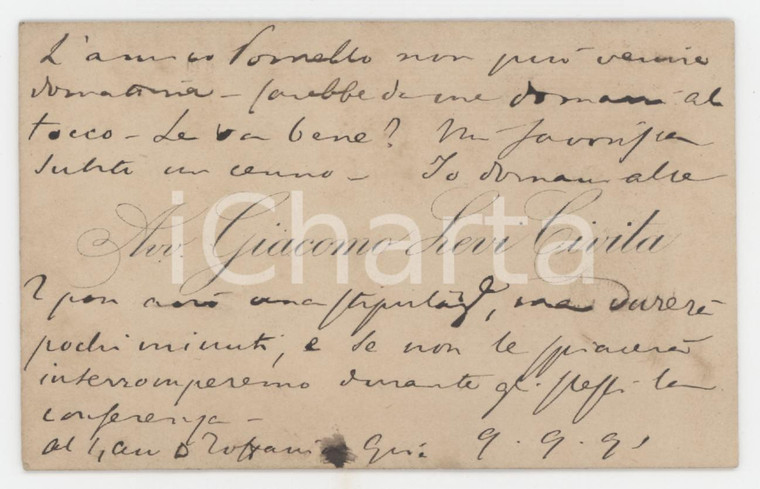 L'amico Romello non può venire
domattina - sarebbe da me domani al
tocco - Le va bene? Mi favorisca
subito un cenno - Io domani alle
Avv. Giacomo Levi Civita
iCharta
2 pom avrò una stipulaz, ma durerà
pochi minuti, e se non le spiacerà
interromperemo durante gli stessi la
conferenza -
al 9. 9. 91